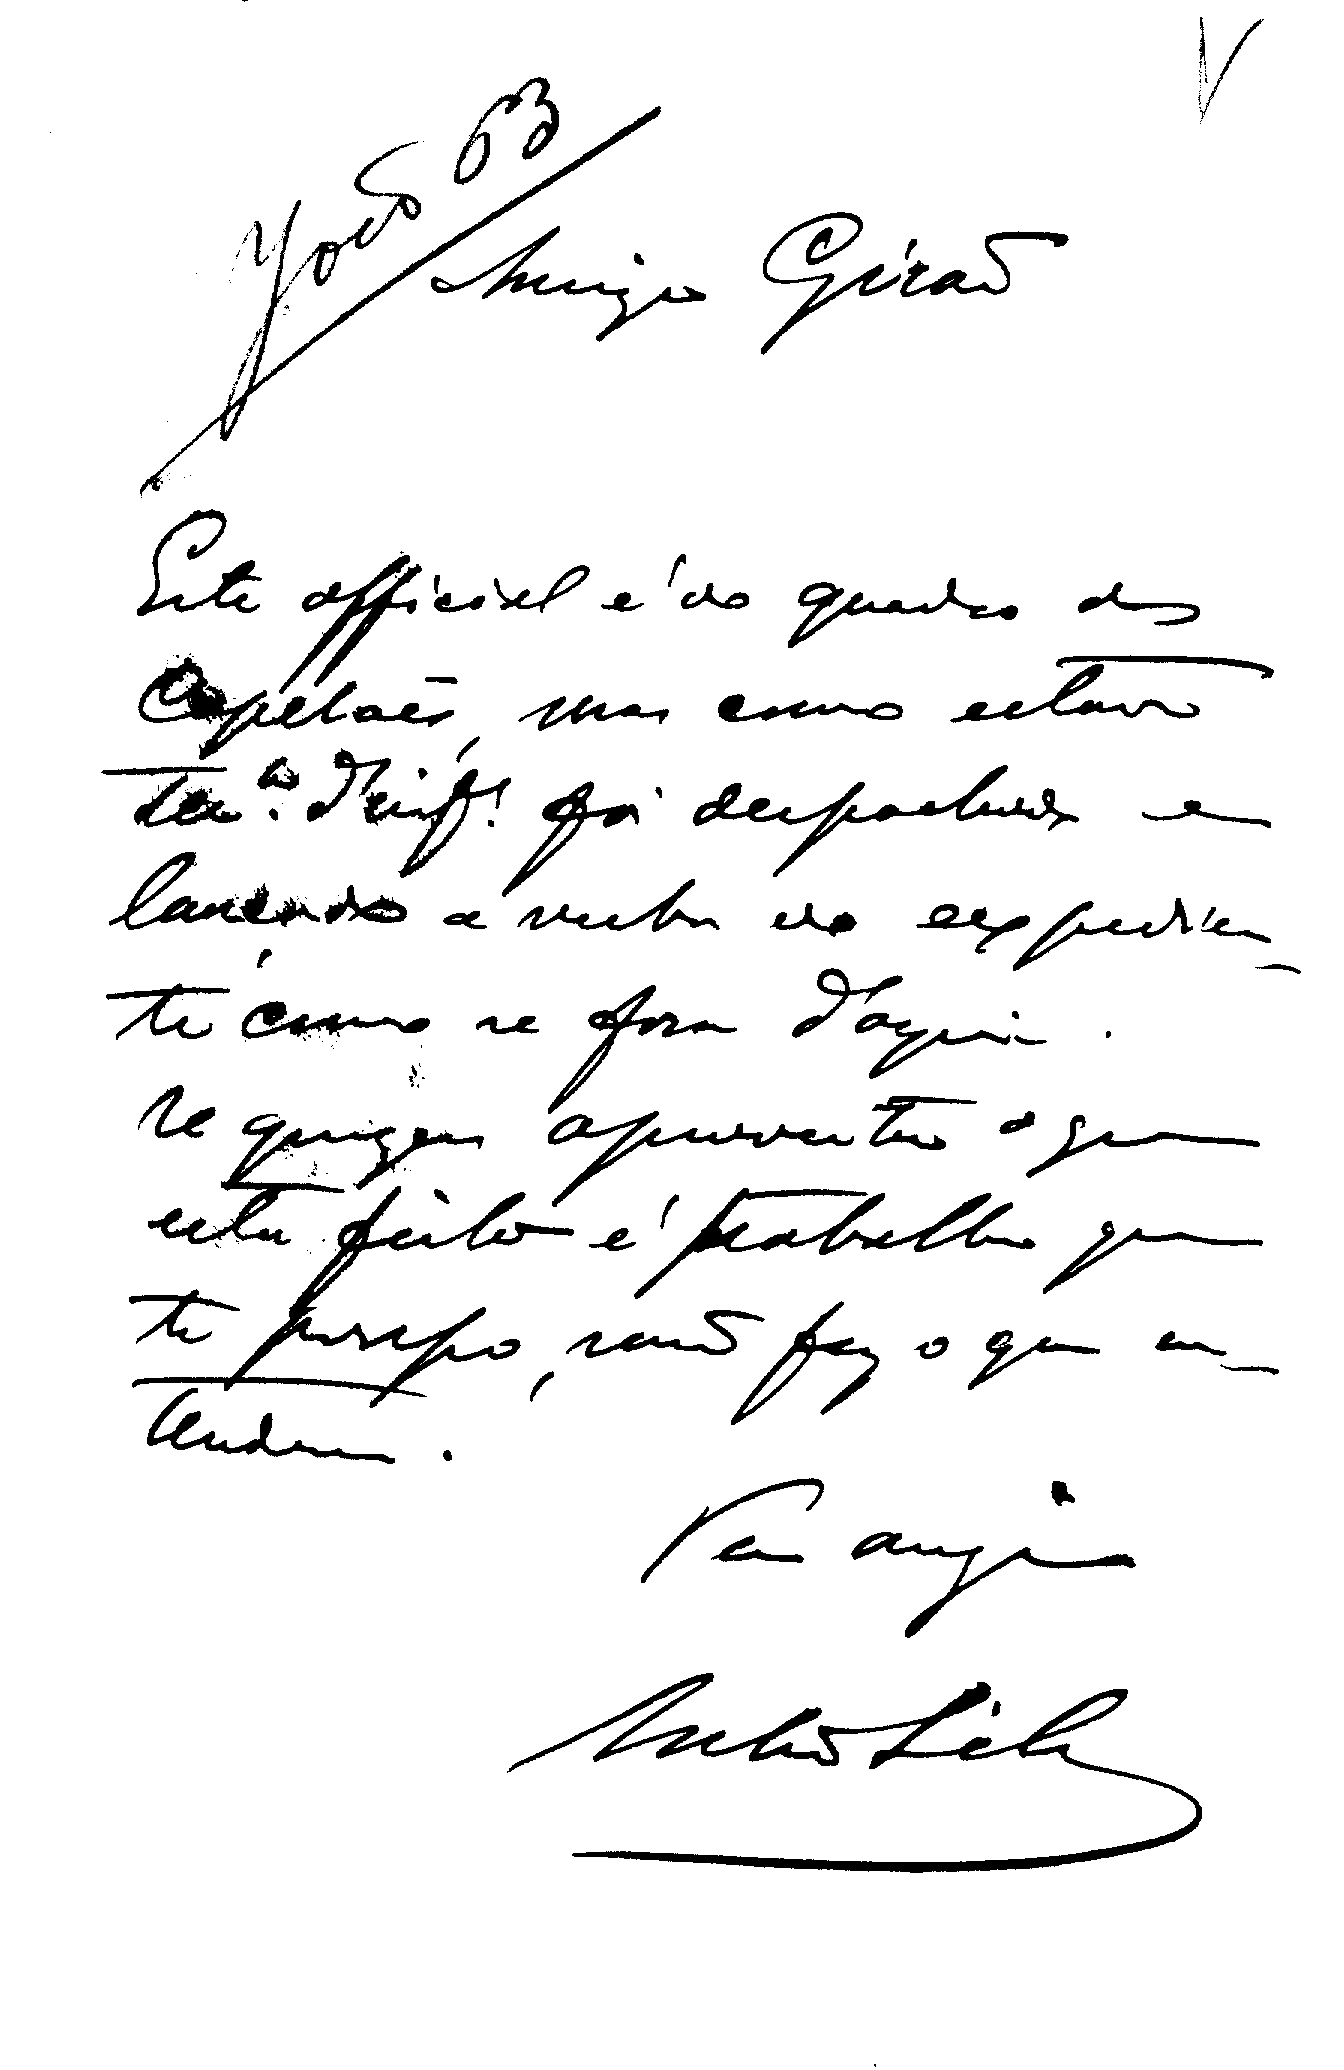 63
Amigo Girão
Este official é do quadro dos
Capelães, mas como estava
d'inf. foi despachado e
lançado a verba no expedien-
te como se fora d'aqui.
Se quizer aproveitar o que
esta feito é trabalho que
te poupo, senão faz o que en-
tenderes.
Teu amigo